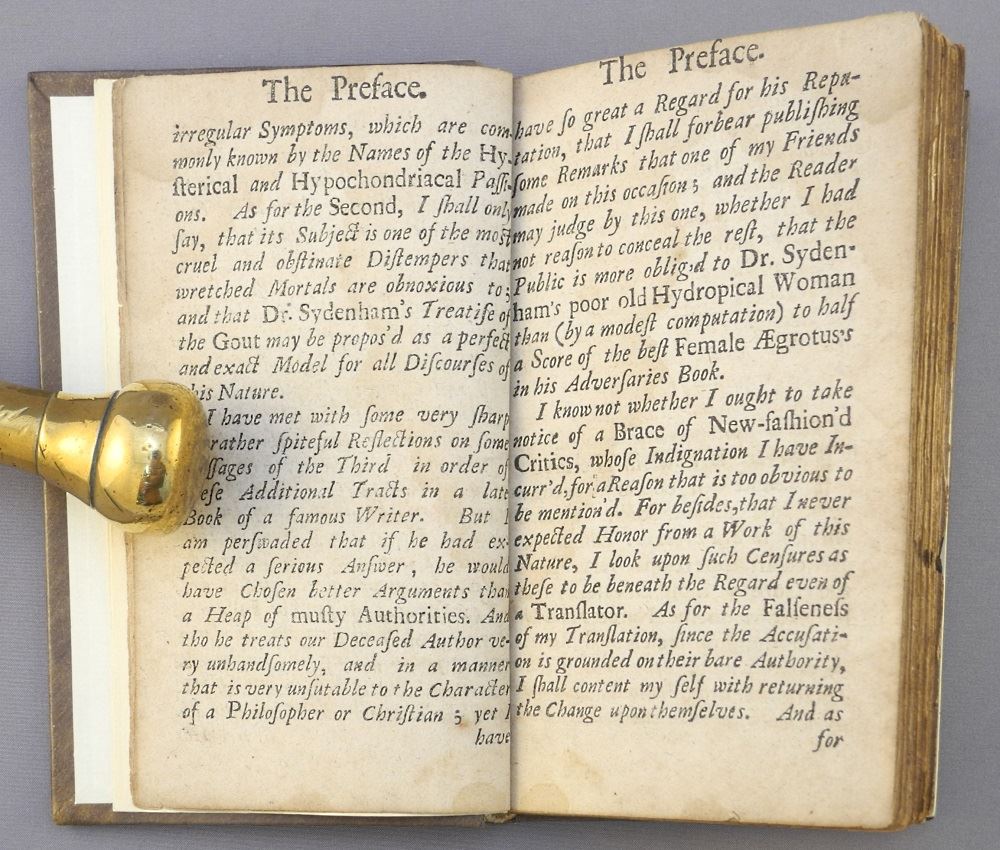 The Preface.
irregular Symptoms, which are com-
monly known by the Names of the Hy-
ſterical and Hypochondriacal Paſſi-
ons. As for the Second, I ſhall only
ſay, that its Subject is one of the moſt
cruel and obſtinate Diſtempers that
wretched Mortals are obnoxious to;
and that Dr. Sydenham's Treatiſe of
the Gout may be propos'd as a perfect
and exact Model for all Diſcourſes of
his Nature.
I have met with ſome very ſharp
rather ſpiteful Reflections on ſome
ſſages of the Third in order of
eſe Additional Tracts in a late
Book of a famous Writer. But I
am perſwaded that if he had ex-
pected a ſerious Anſwer, he would
have Choſen better Arguments than
a Heap of muſty Authorities. And
tho he treats our Deceaſed Author ve-
ry unhandſomely, and in a manner
that is very unſutable to the Character
of a Philoſopher or Chriſtian; yet I
have
The Preface.
have ſo great a Regard for his Repu-
tation, that I ſhall forbear publiſhing
ſome Remarks that one of my Friends
made on this occaſion; and the Reader
may judge by this one, whether I had
not reaſon to conceal the reſt, that the
Public is more oblig,d to Dr. Syden-
ham's poor old Hydropical Woman
than (by a modeſt computation) to half
a Score of the beſt Female Ægrotus's
in his Adverſaries Book.
I know not whether I ought to take
notice of a Brace of New-faſhion'd
Critics, whoſe Indignation I have In-
curr'd, for a Reaſon that is too obvious to
be mention'd. For beſides, that I never
expected Honor from a Work of this
Nature, I look upon ſuch Cenſures as
theſe to be beneath the Regard even of
a Tranſlator. As for the Falſeneſs
of my Tranſlation, ſince the Accuſati-
on is grounded on their bare Authority,
I ſhall content my ſelf with returning
the Change upon themſelves. And as
for